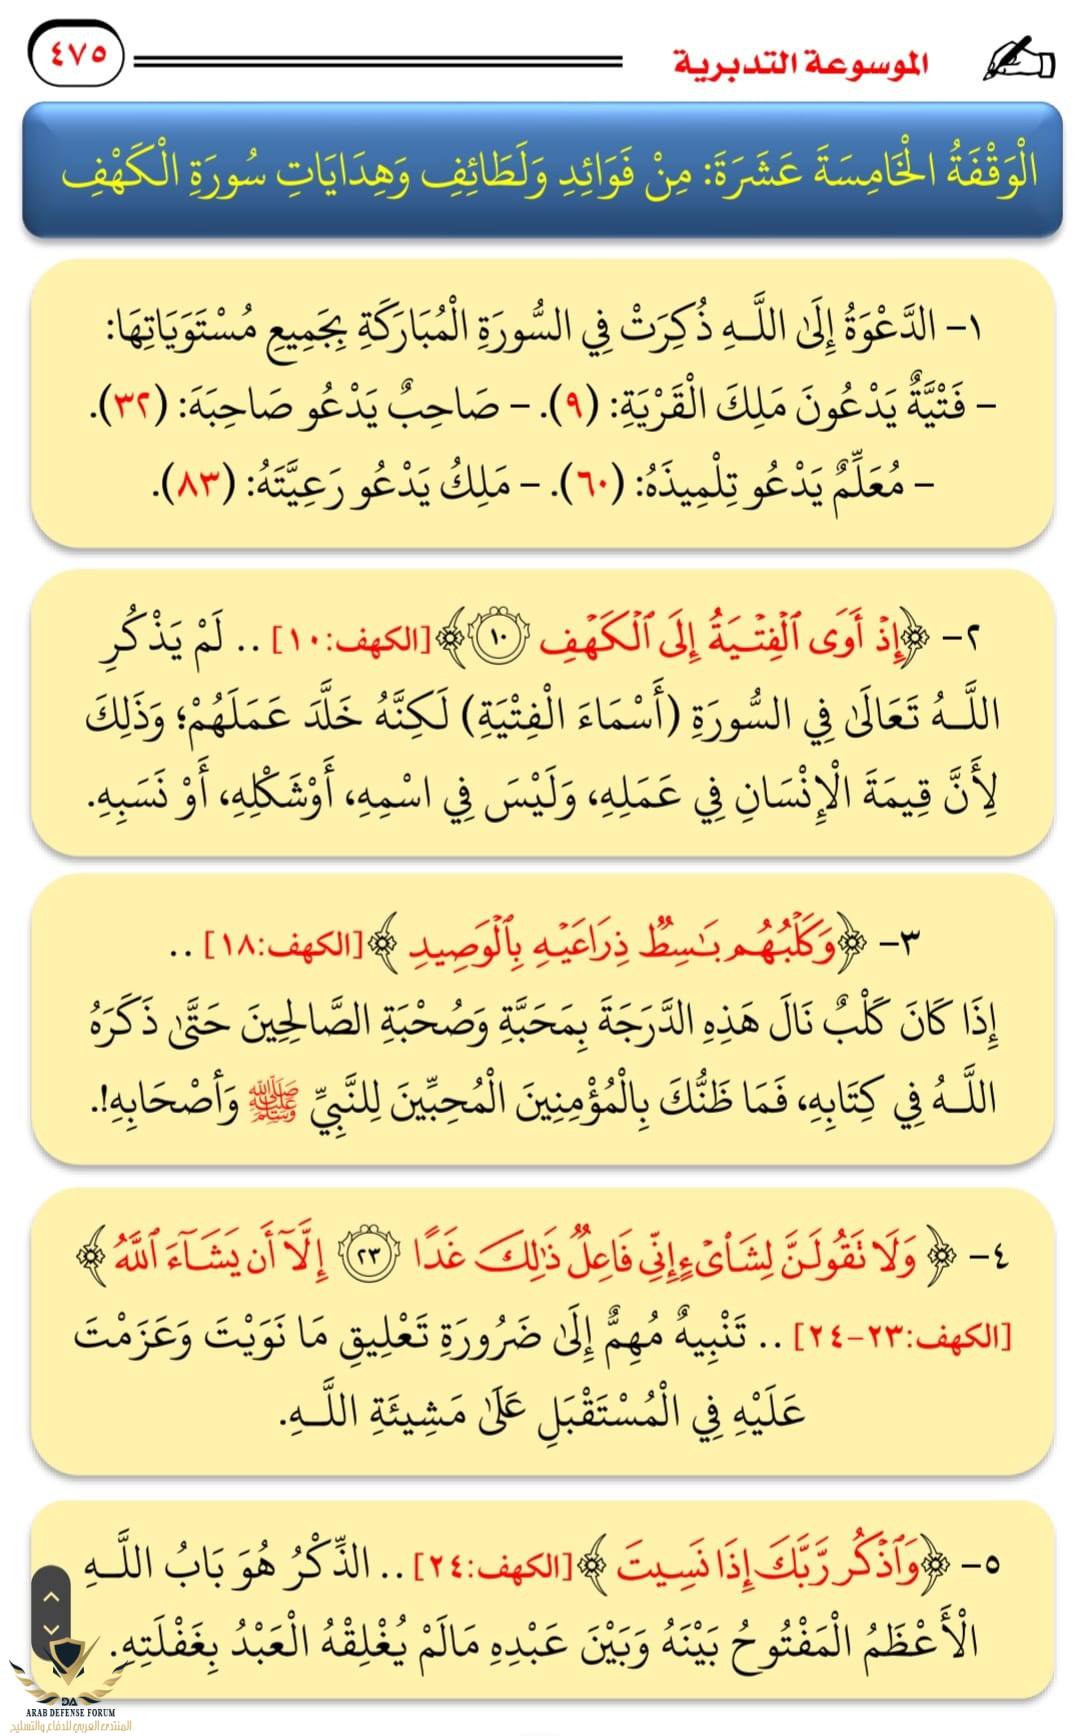 الموسوعة التدبرية
٤٧٥
الْوَقْفَةُ الْخَامِسَةَ عَشَرَةَ: مِنْ فَوَائِدِ وَلَطَائِفِ وَهِدَايَاتِ سُورَةِ الْكَهْفِ
١- الدَّعْوَةُ إِلَىٰ اللَّـهِ ذُكِرَتْ فِي السُّورَةِ الْمُبَارَكَةِ بِجَمِيعِ مُسْتَوَيَاتِهَا:
- فَتْيَّةٌ يَدْعُونَ مَلِكَ الْقَرْيَةِ: (٩). - صَاحِبٌ يَدْعُو صَاحِبَهَ: (٣٢).
- مُعَلِّمٌ يَدْعُو تِلْمِيذَهُ: (٦٠). - مَلِكُ يَدْعُو رَعِيَّتَهُ: (٨٣).
٢- ﴿إِذْ أَوَى ٱلْفِتْيَةُ إِلَى ٱلْكَهْفِ ١٠﴾ [الكهف:١٠] .. لَمْ يَذْكُرِ
اللَّـهُ تَعَالَىٰ فِي السُّورَةِ (أَسْمَاءَ الْفِتْيَةِ) لَكِنَّهُ خَلَّدَ عَمَلَهُمْ؛ وَذَلِكَ
لِأَنَّ قِيمَةَ الْإِنْسَانِ فِي عَمَلِهِ، وَلَيْسَ فِي اسْمِهِ، أَوْشَكْلِهِ، أَوْ نَسَبِهِ.
٣- ﴿وَكَلْبُهُم بَٰسِطٌ ذِرَاعَيْهِ بِٱلْوَصِيدِ﴾ [الكهف:١٨] ..
إِذَا كَانَ كَلْبٌ نَالَ هَذِهِ الدَّرَجَةَ بِمَحَبَّةِ وَصُحْبَةِ الصَّالِحِينَ حَتَّىٰ ذَكَرَهُ
اللَّـهُ فِي كِتَابِهِ، فَمَا ظَنُّكَ بِالْمُؤْمِنِينَ الْمُحِبِّينَ لِلنَّبِيِّ ﷺ وَأَصْحَابِهِ!.
٤- ﴿وَلَا تَقُولَنَّ لِشَا۟ىْءٍ إِنِّى فَاعِلٌ ذَٰلِكَ غَدًا ٢٣ إِلَّآ أَن يَشَآءَ ٱللَّهُ﴾
[الكهف:٢٣-٢٤] .. تَنْبِيهٌ مُهِمٌّ إِلَىٰ ضَرُورَةِ تَعْلِيقِ مَا نَوَيْتَ وَعَزَمْتَ
عَلَيْهِ فِي الْمُسْتَقْبَلِ عَلَىٰ مَشِيئَةِ اللَّـهِ.
٥- ﴿وَٱذْكُر رَّبَّكَ إِذَا نَسِيتَ﴾ [الكهف:٢٤] .. الذِّكْرُ هُوَ بَابُ اللَّـهِ
الْأَعْظَمُ الْمَفْتُوحُ بَيْنَهُ وَبَيْنَ عَبْدِهِ مَالَمْ يُغْلِقْهُ الْعَبْدُ بِغَفْلَتِهِ.
DA
ARAB DEFENSE FORUM
المنتدى العربي للدفاع والتسليح